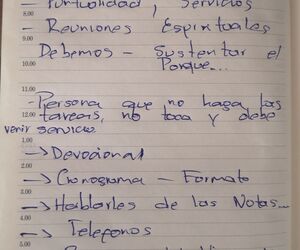 - Puntualidad, Servicios
8.00
- Reuniones Espirituales
9.00
Debemos - Sustentar el
10.00
Porque...
11.00
- Persona que no haga las
12.00
tareas, no toca y debe
venir servicio.
1.00
→ Devocional
2.00
→ Cronograma - Formato
3.00
→ Hablarles de las Notas...
4.00
→ Telefonos
5.00